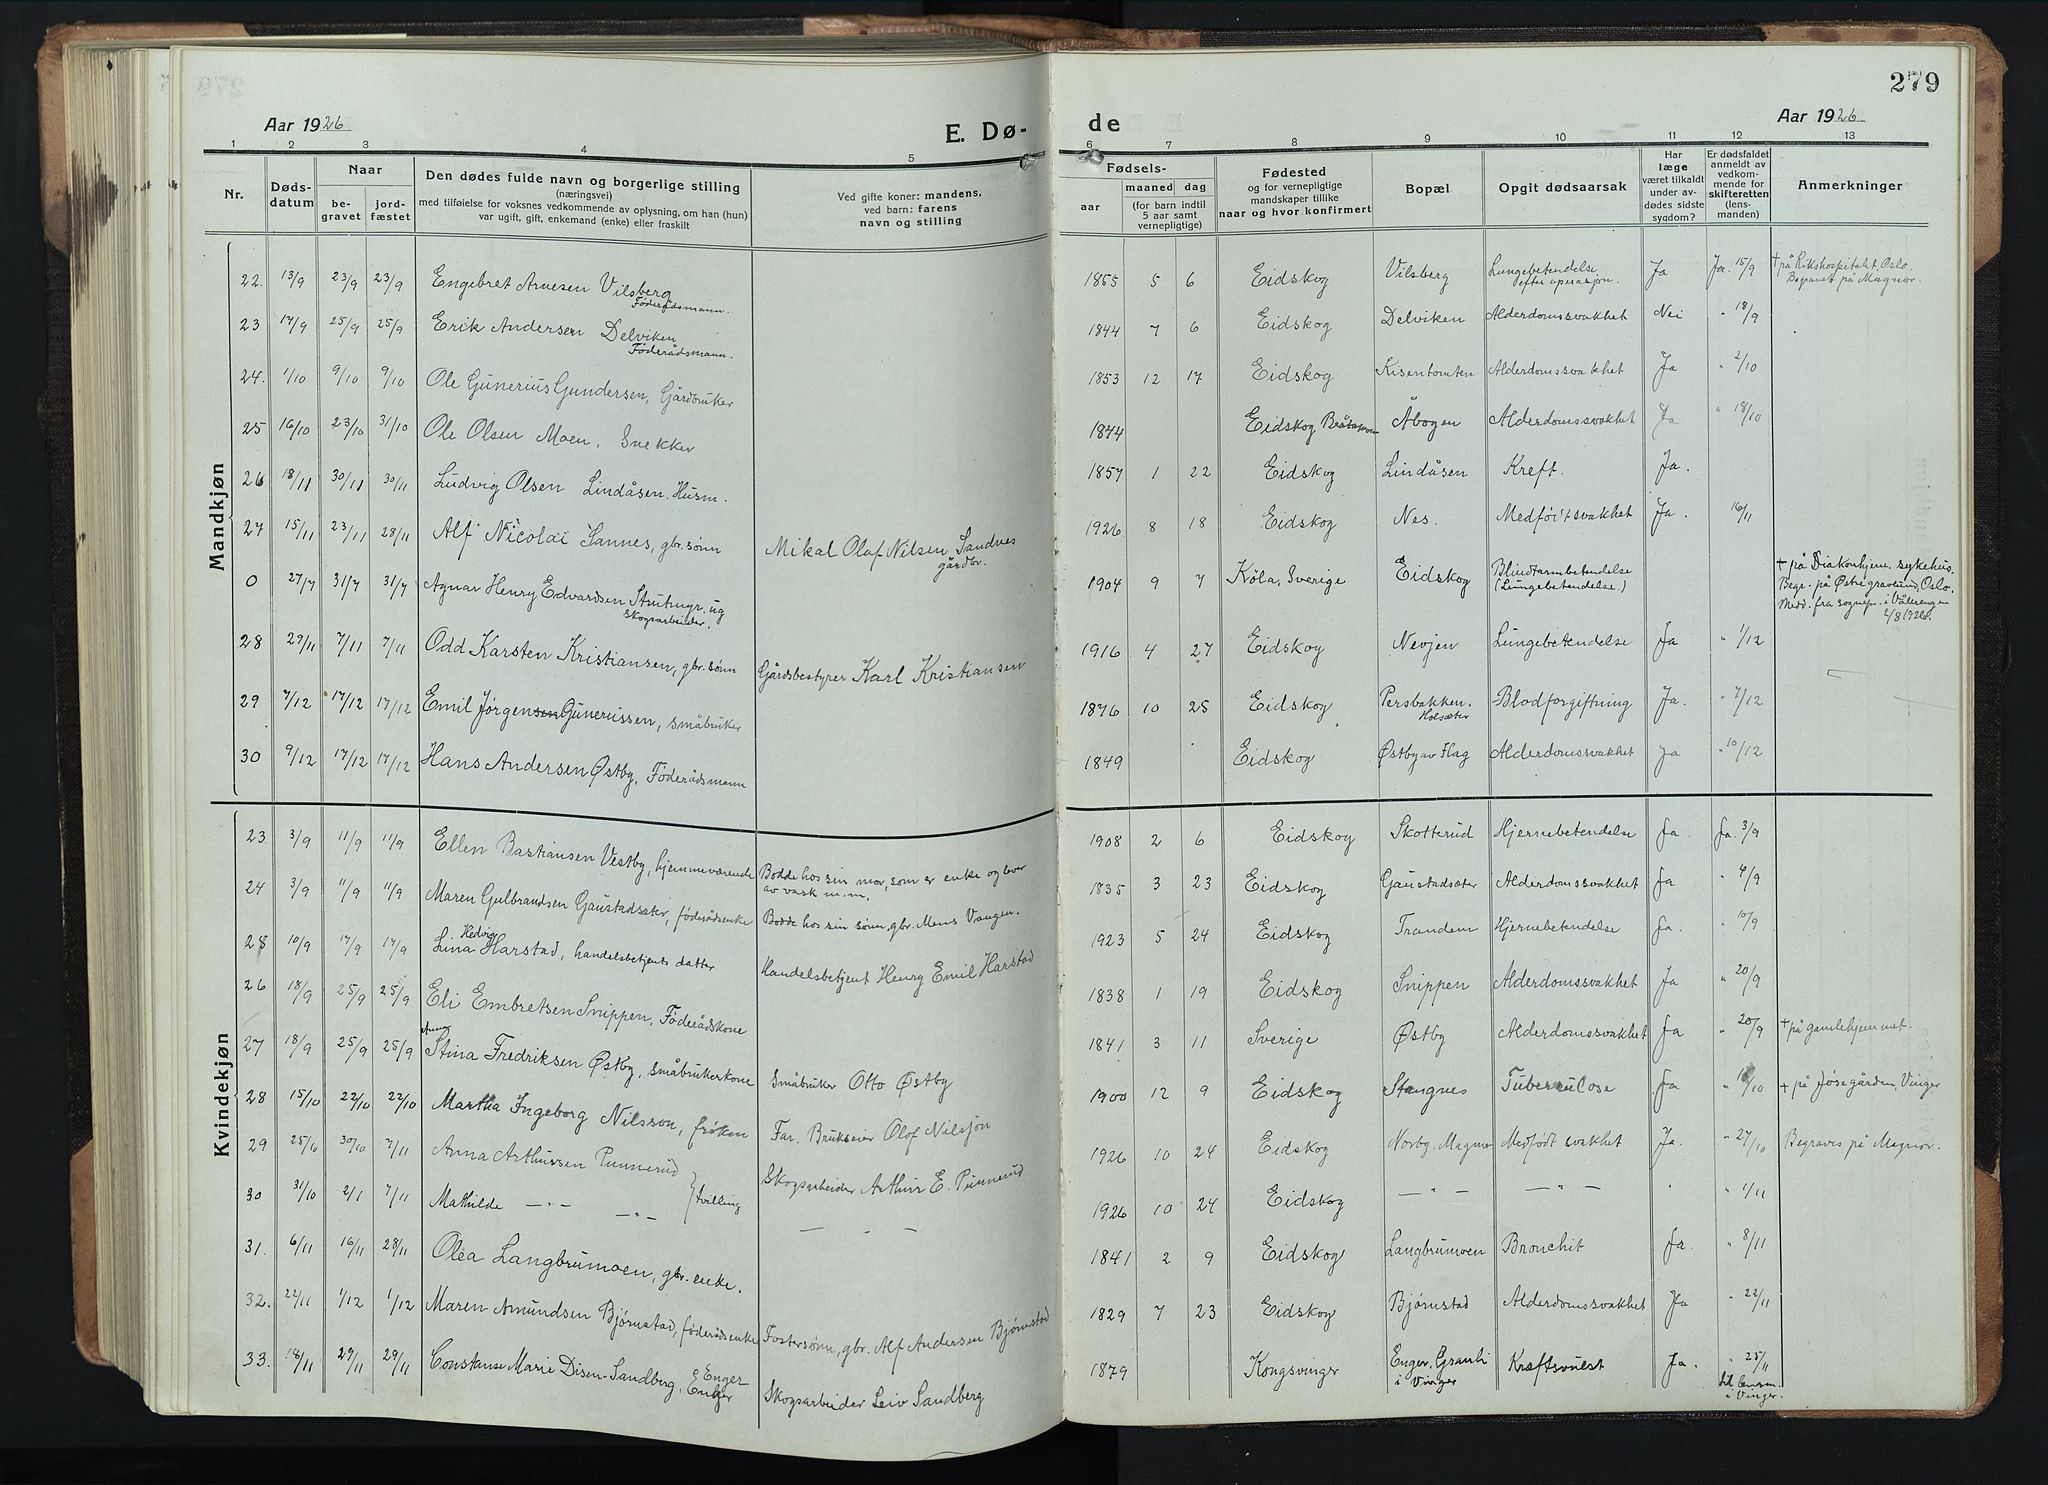 279
Aar 1926
E. Dø-
de
Aar 1926
1 2 3 4 5 6 7 8 9 10 11 12 13
Nr.
Døds-
datum
Naar
be-
gravet
jord-
fæstet
Den dødes fulde navn og borgerlige stilling
(næringsvei)
med tilføielse for voksnes vedkommende av oplysning, om han (hun)
var ugift, gift, enkemand (enke) eller fraskilt
Ved gifte koner: mandens,
ved barn: farens
navn og stilling
Fødsels-
aar
maaned dag
(for barn indtil
5 aar samt
vernepligtige)
Fødested
og for vernepligtige
mandskaper tillike
naar og hvor konfirmert
Bopæl
Opgit dødsaarsak
Har
læge
været tilkaldt
under av-
dødes sidste
sygdom?
Er dødsfaldet
anmeldt av
vedkom-
mende for
skifteretten
(lens-
manden)
Anmerkninger
Mandkjøn
22. 13/9 23/9 23/9 Engebret Arnesen Vilsberg Föderådsmann. 1855 5 6 Eidskog Vilsberg Lungebetendelse efter operasjon. Ja Ja. 15/9 + på Rikshospitalet, Oslo. Begravet på Magnor.
23 17/9 25/9 25/9 Erik Andersen Delviken Föderådsmann. 1844 7 6 Eidskog Delviken Alderdomssvakhet Nei " 18/9
24. 1/10 9/10 9/10 Ole Gunerius Gundersen, Gårdbruker 1853 12 17 Eidskog Kisentomten Alderdomssvakhet Ja " 2/10
25 16/10 23/10 31/10 Ole Olsen Moen, Snekker 1844 Eidskog Åbogen Alderdomssvakhet Ja " 18/10
26 18/11 30/11 30/11 Ludvig Olsen Lindåsen. Husm. 1857 1 22 Eidskog Lindåsen Kreft. Ja.
27 15/11 23/11 28/11 Alf Nicolai Sannes, gbr. sønn Mikal Olaf Nilsen Sandnes gårdbr. 1926 8 18 Eidskog Nes. Medføit svakhet Ja. 16/11
0 27/7 31/7 31/7 Agnar Henry Edvardsen ug Skogsarbeider. 1904 9 7 Köla, Sverige Eidskog Blindtarmbetendelse (Lungebetendelse.) + på Diakonhjem. sykehus. Begr. på Østre gravlund, Oslo. Medd. fra sognepr. i Vålerengen 2/8 1926.
28 29/11 7/11 7/11 Odd Karsten Kristiansen, gbr. sønn Gårdsbestyrer Karl Kristiansen 1916 4 27 Eidskog Nevjen Lungebetendelse Ja " 1/12
29 7/12 17/12 17/12 Emil Jørgensen Gunerussen, småbruker 1876 10 25 Eidskog Persbakken. Holsæter Blodforgiftning Ja. " 7/12
30 9/12 17/12 17/12 Hans Andersen Østby, Föderådsmann 1849 Eidskog Østby av Flag Alderdomssvakhet Ja " 10/12
Kvindekjøn
23. 3/9 11/9 11/9 Ellen Bastiansen Vestby, hjemmeværende Bodde hos sin mor, som er enke og lever av vask m.m. 1908 2 6 Eidskog Skotterud Hjernebetendelse Ja. Ja. 3/9
24 3/9 11/9 11/9 Maren Gulbrandsen Gaustadsæter, föderådsenke Bodde hos sin sønn, gbr. Mens Vangen. 1835 3 23 Eidskog Gaustadsæter Alderdomssvakhet Ja " 4/9
28 10/9 17/9 17/9 Lina Hedvig Harstad, handelsbetjents datter Handelsbetjent Henry Emil Harstad 1923 5 24 Eidskog Trandem Hjernebetendelse Ja. " 10/9
26 18/9 25/9 25/9 Eli Embretsen Snippen, Föderådskone 1838 1 19 Eidskog Snippen Alderdomssvakhet Ja " 20/9
27 18/9 25/9 25/9 Anna Stina Fredriksen Østby, småbrukerkone Småbruker Otto Østby 1841 3 11 Sverige Østby Alderdomssvakhet Ja " 20/9 + på gamlehjemmet.
28 15/10 22/10 22/10 Martha Ingeborg Nilsson, frøken Far. Brukseier Olof Nilsjon 1900 12 9 Eidskog Stangnes Tuberculose Ja + på Jøsegården, Vinger
29 25/10 30/10 7/11 Anna Arthussen Punnerud Skogsarbeider Arthur E. Punnerud 1926 10 24 Eidskog Norbg. Magno Medfødt svakhet Ja. " 27/10 Begraves på Magnor.
30 31/10 2/1 7/11 Mathilde —"— —"— } tvilling — " — 1926 10 24 Eidskog — " — — " — " " 1/11
31. 6/11 16/11 28/11 Olea Langbrumoen, gbr. enke. 1841 2 9 Eidskog Langbrumoen Bronchit Ja. " 8/11
32. 22/11 1/12 1/12 Maren Amundsen Bjørnstad, föderådsenke Fostersønn, gbr. Alf Andersen Bjørnstad 1829 7 23 Eidskog Bjørnstad Alderdomssvakhet Ja " 22/11
33. 18/11 29/11 29/11 Constanse Marie Disen-Sandberg, Enger Skogsarbeider Leiv Sandberg 1879 Kongsvinger Enger, Granli i Vinger Kræftsvulst Ja. " 25/11 til lensm. i Vinger.